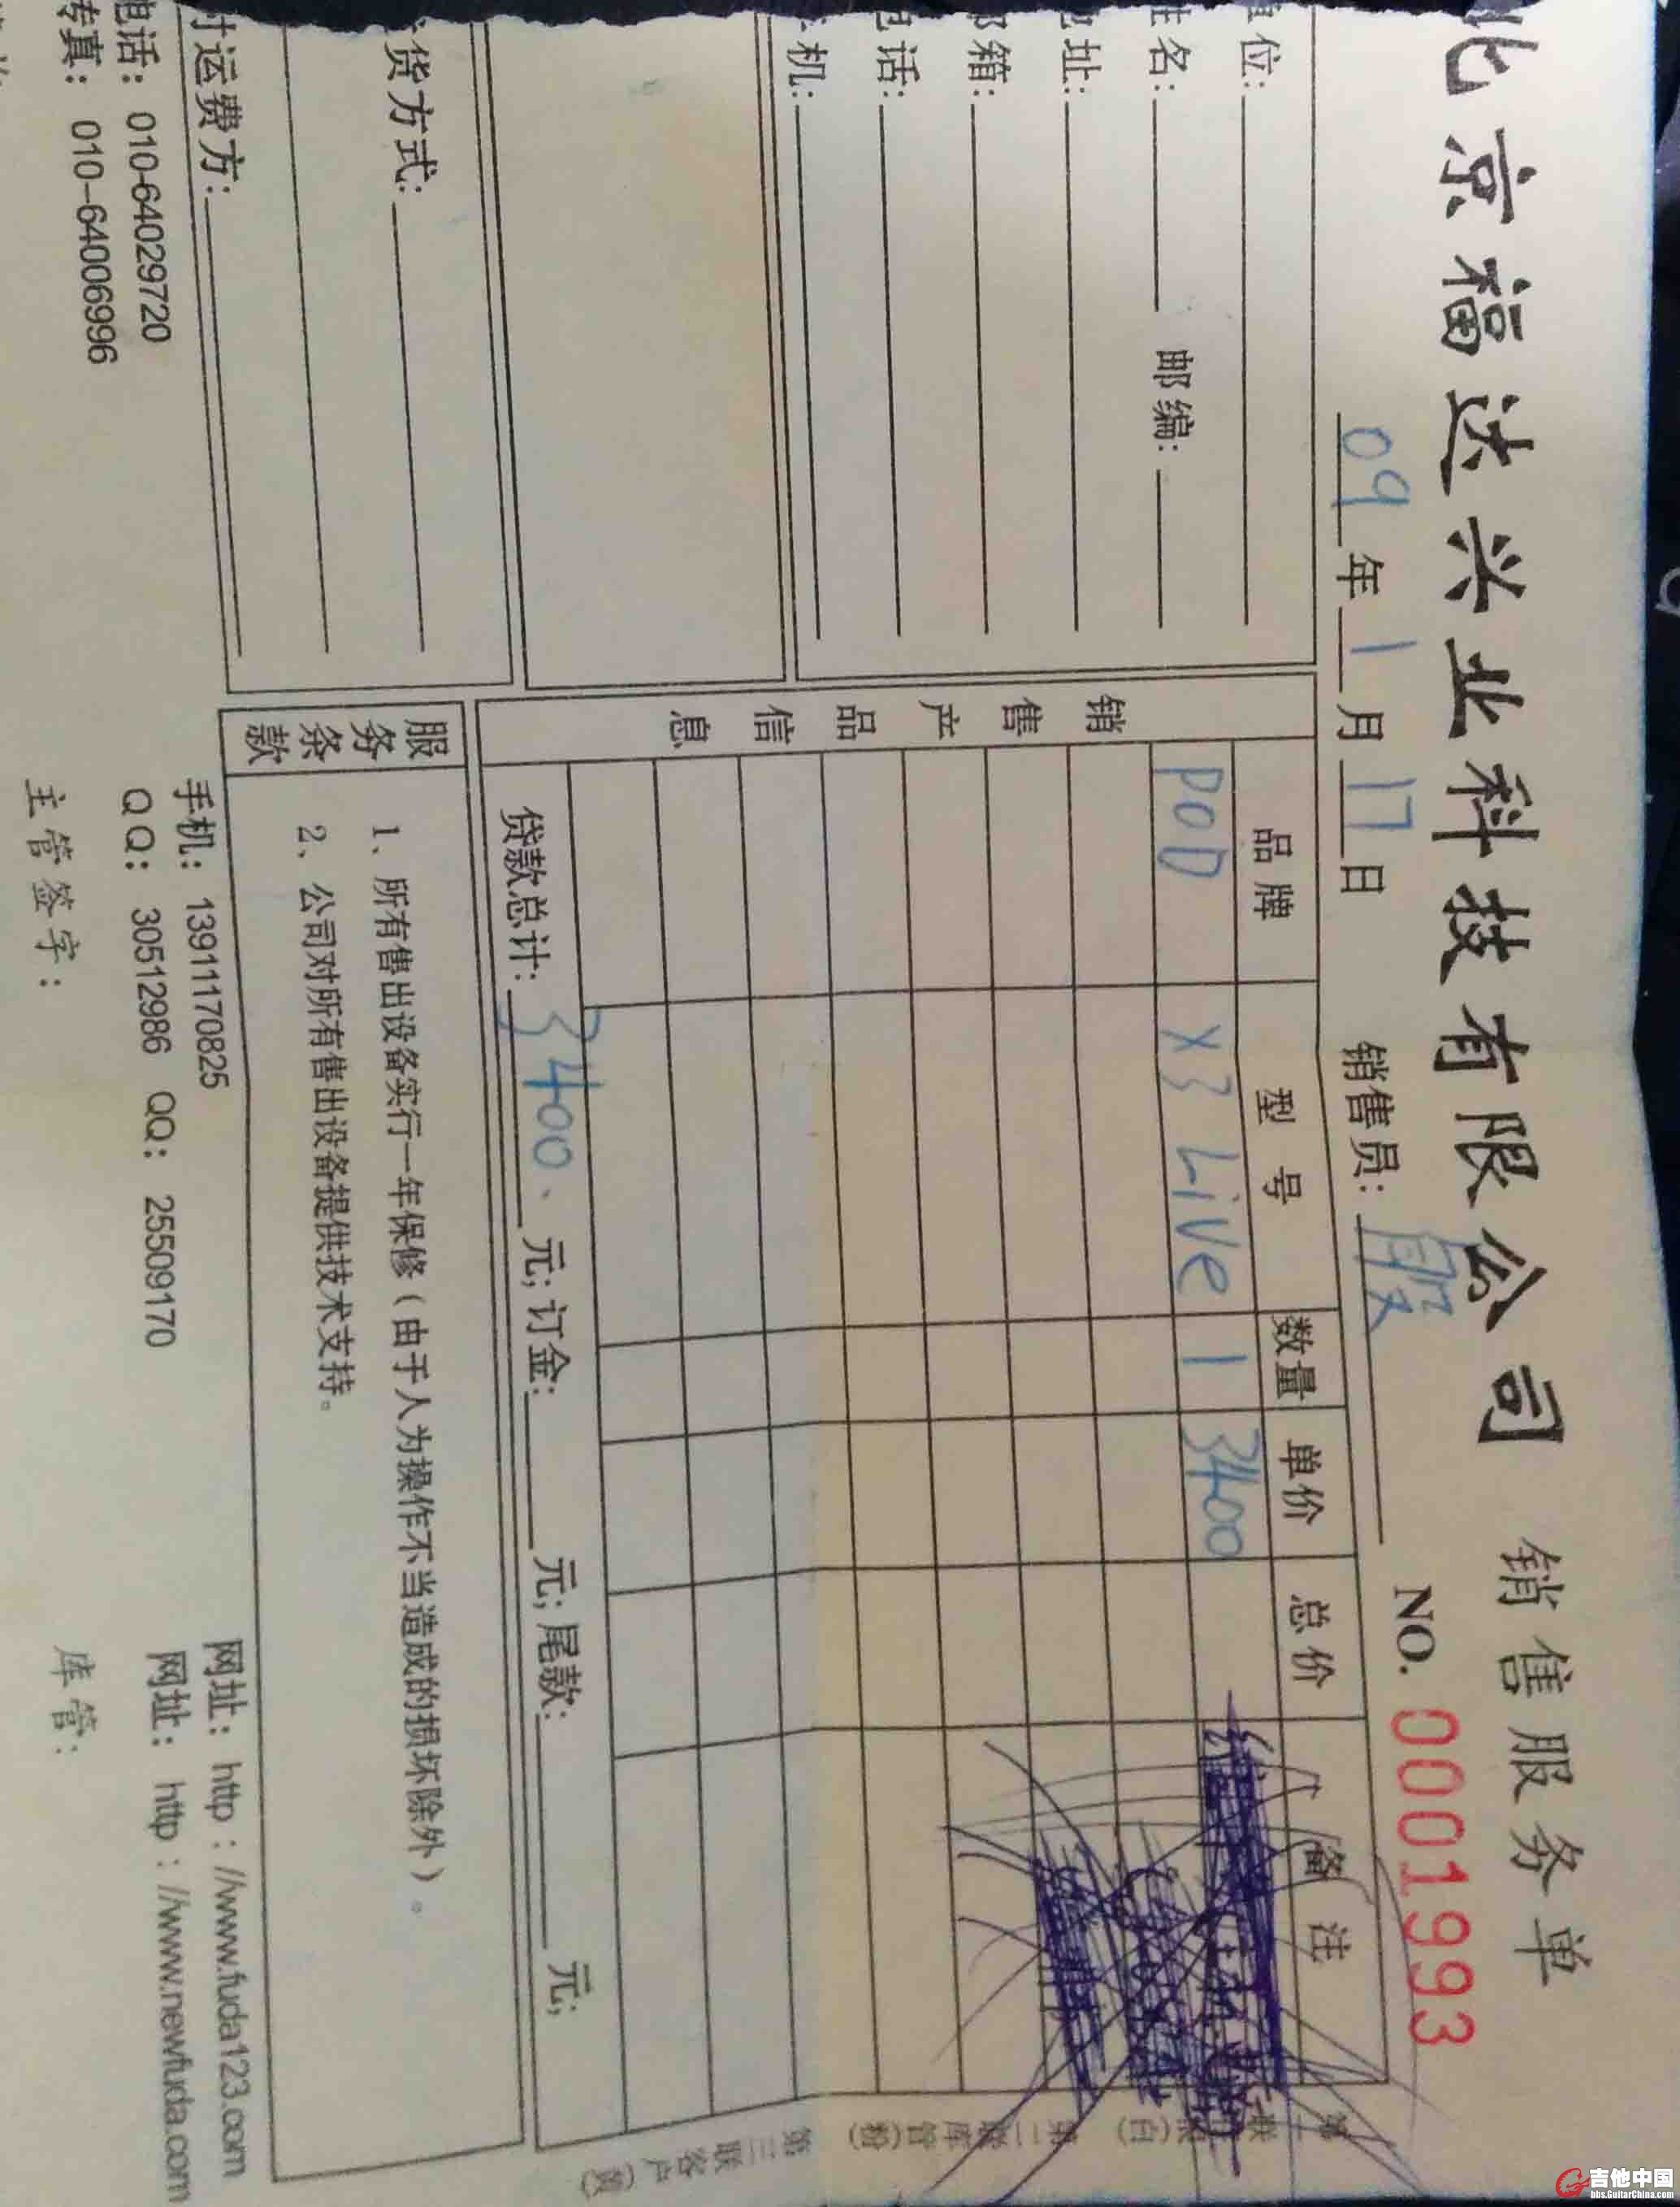 北京福达兴业科技有限公司 销售服务单
09年1月17日 销售员: NO. 0001993
位:
名: 邮编:
址:
箱:
话:
机:
货方式:
付运费方:
销售产品信息
品牌 型号 数量 单价 总价 备注
POD X3 Live 1 3400
贷款总计: 3400、元; 订金: 元; 尾款: 元;
服务条款
1、所有售出设备实行一年保修(由于人为操作不当造成的损坏除外)。
2、公司对所有售出设备提供技术支持。
电话: 010-64029720 手机: 13911170825 网址: http://www.fuda123.com
传真: 010-64006996 QQ: 30512986 QQ: 25509170 网址: http://www.newfuda.com
主管签字: 库管:
第二联库管(粉)
第三联客户(黄)
吉他中国
bbs.GuitarChina.com